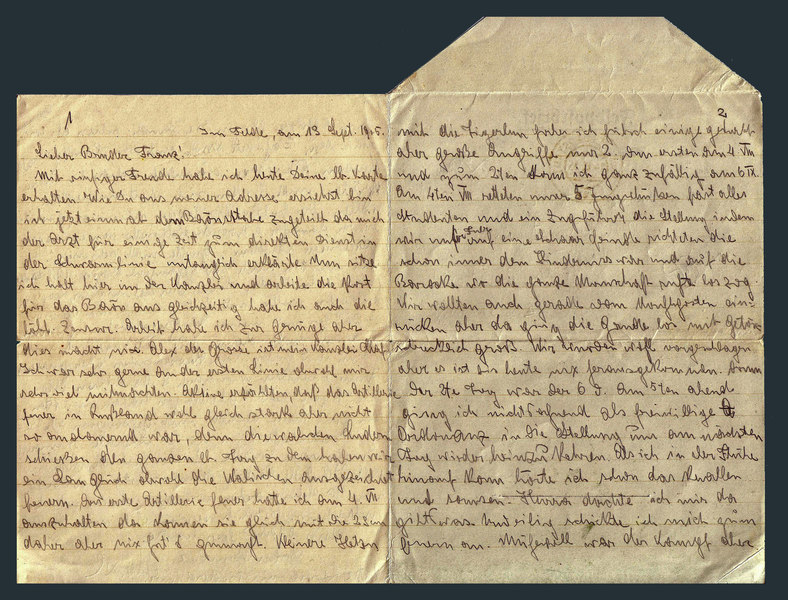 1
Im Felde, am 13. Sept. 1915.
Lieber Bruder Franz!
Mit riesiger Freude habe ich heute Deine lb. Karte
erhalten. Wie Du aus meiner Adresse ersiehst bin
ich jetzt einmal dem Baonsstabe zugeteilt da mich
der Arzt für einige Zeit zum direkten Dienst in
der Schwarmlinie untauglich erklärte. Nun sitze
ich halt hier in der Kanzlei und arbeite die Post
für das Baon aus gleichzeitig habe ich auch die
Zensur. Arbeit habe ich zur genüge aber
dies macht nix. Alex der Große ist mein Kanzlei Chef.
Ich war sehr gerne an der ersten Linie obwohl wir
sehr viel mitmachten. Aktive erzählten, daß das Artillerie
feuer in Rußland wohl gleich stark aber nicht
so andauernd war, denn die
schießen den ganzen lb. Tag zu dem haben wir
ein obwohl die Walischen ausgezeichnet
feuern. Das erste Artillerie feuer hatte ich am 4. VII
auszuhalten da kamen sie gleich mit die 28 cm
daher aber nix Kleinere
2
mit die habe ich einige gehabt
aber große Angriffe nur 2. Am ersten am 4 VIII
und zum 2ten kam ich ganz zufällig am 6 IX.
Am 4ten VIII retteten unser 5 fast alles
Studenten und ein Zugsführer die Stellung indem
wir auf eine Schaar Feinde richteten die
schon inner dem Hinderniss war und auf die
Baracke wo die ganze Mannschaft war los zog
Wir wollten auch gerade vom einrücken
aber da ging die Gaudi los mit
schrecklich groß. Wir wurden vorgeschlagen
aber es ist bis heute nix herausgekommen.
Der 2te Tag war der 6 d. Am 5ten abend
ging ich nichts ahnend als freiwillige
Ordonanz in die Stellung um am nächsten
Tag wieder heimzukehren. Als ich in der Frühe
hinauf kam hörte ich schon das Knallen
und sausen. Hurra dachte ich mir da
gibt was. Neu eilig schickte ich mich zum
feuern an. war der Kampf aber